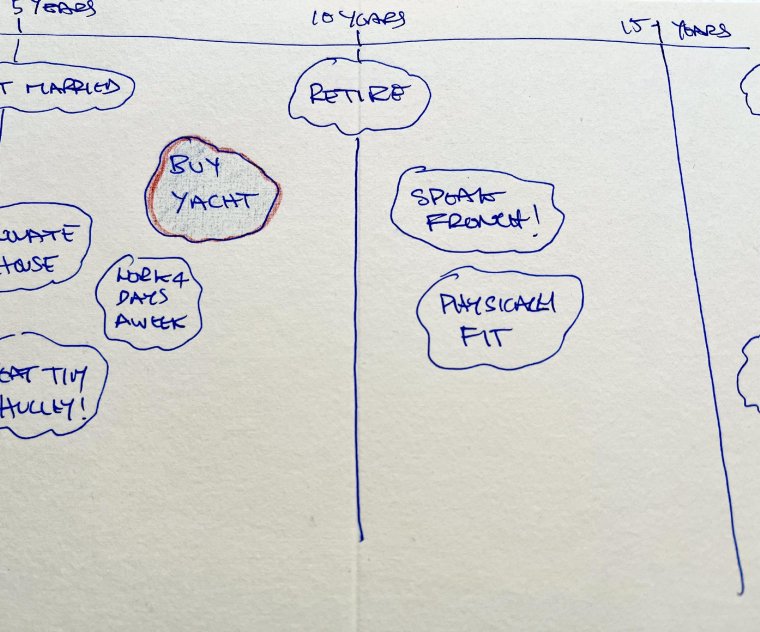 5 YEARS
10 YEARS
15 YEARS
T MARRIED
RETIRE
BUY
YACHT
SPEAK
FRENCH!
OVATE
HOUSE
WORK 4
DAYS
A WEEK
PHYSICALLY
FIT
EAT TIM
HULLEY!